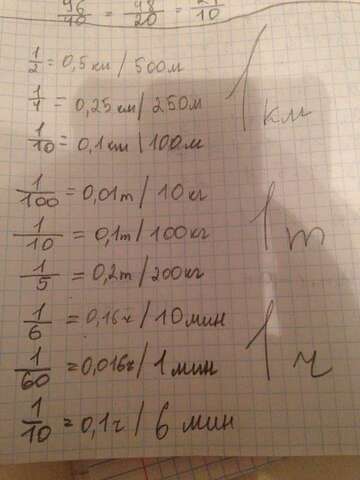 96/40 = 48/20 = 24/10
1/2 = 0,5 км / 500м
1/4 = 0,25 км / 250м
1/10 = 0,1 км | 100м
1 км
1/100 = 0,01т / 10 кг
1/10 = 0,1т / 100кг
1/5 = 0,2т / 200кг
1 т
1/6 = 0,16ч / 10 мин
1/60 = 0,016ч / 1 мин
1/10 = 0,1ч / 6 мин
1 ч